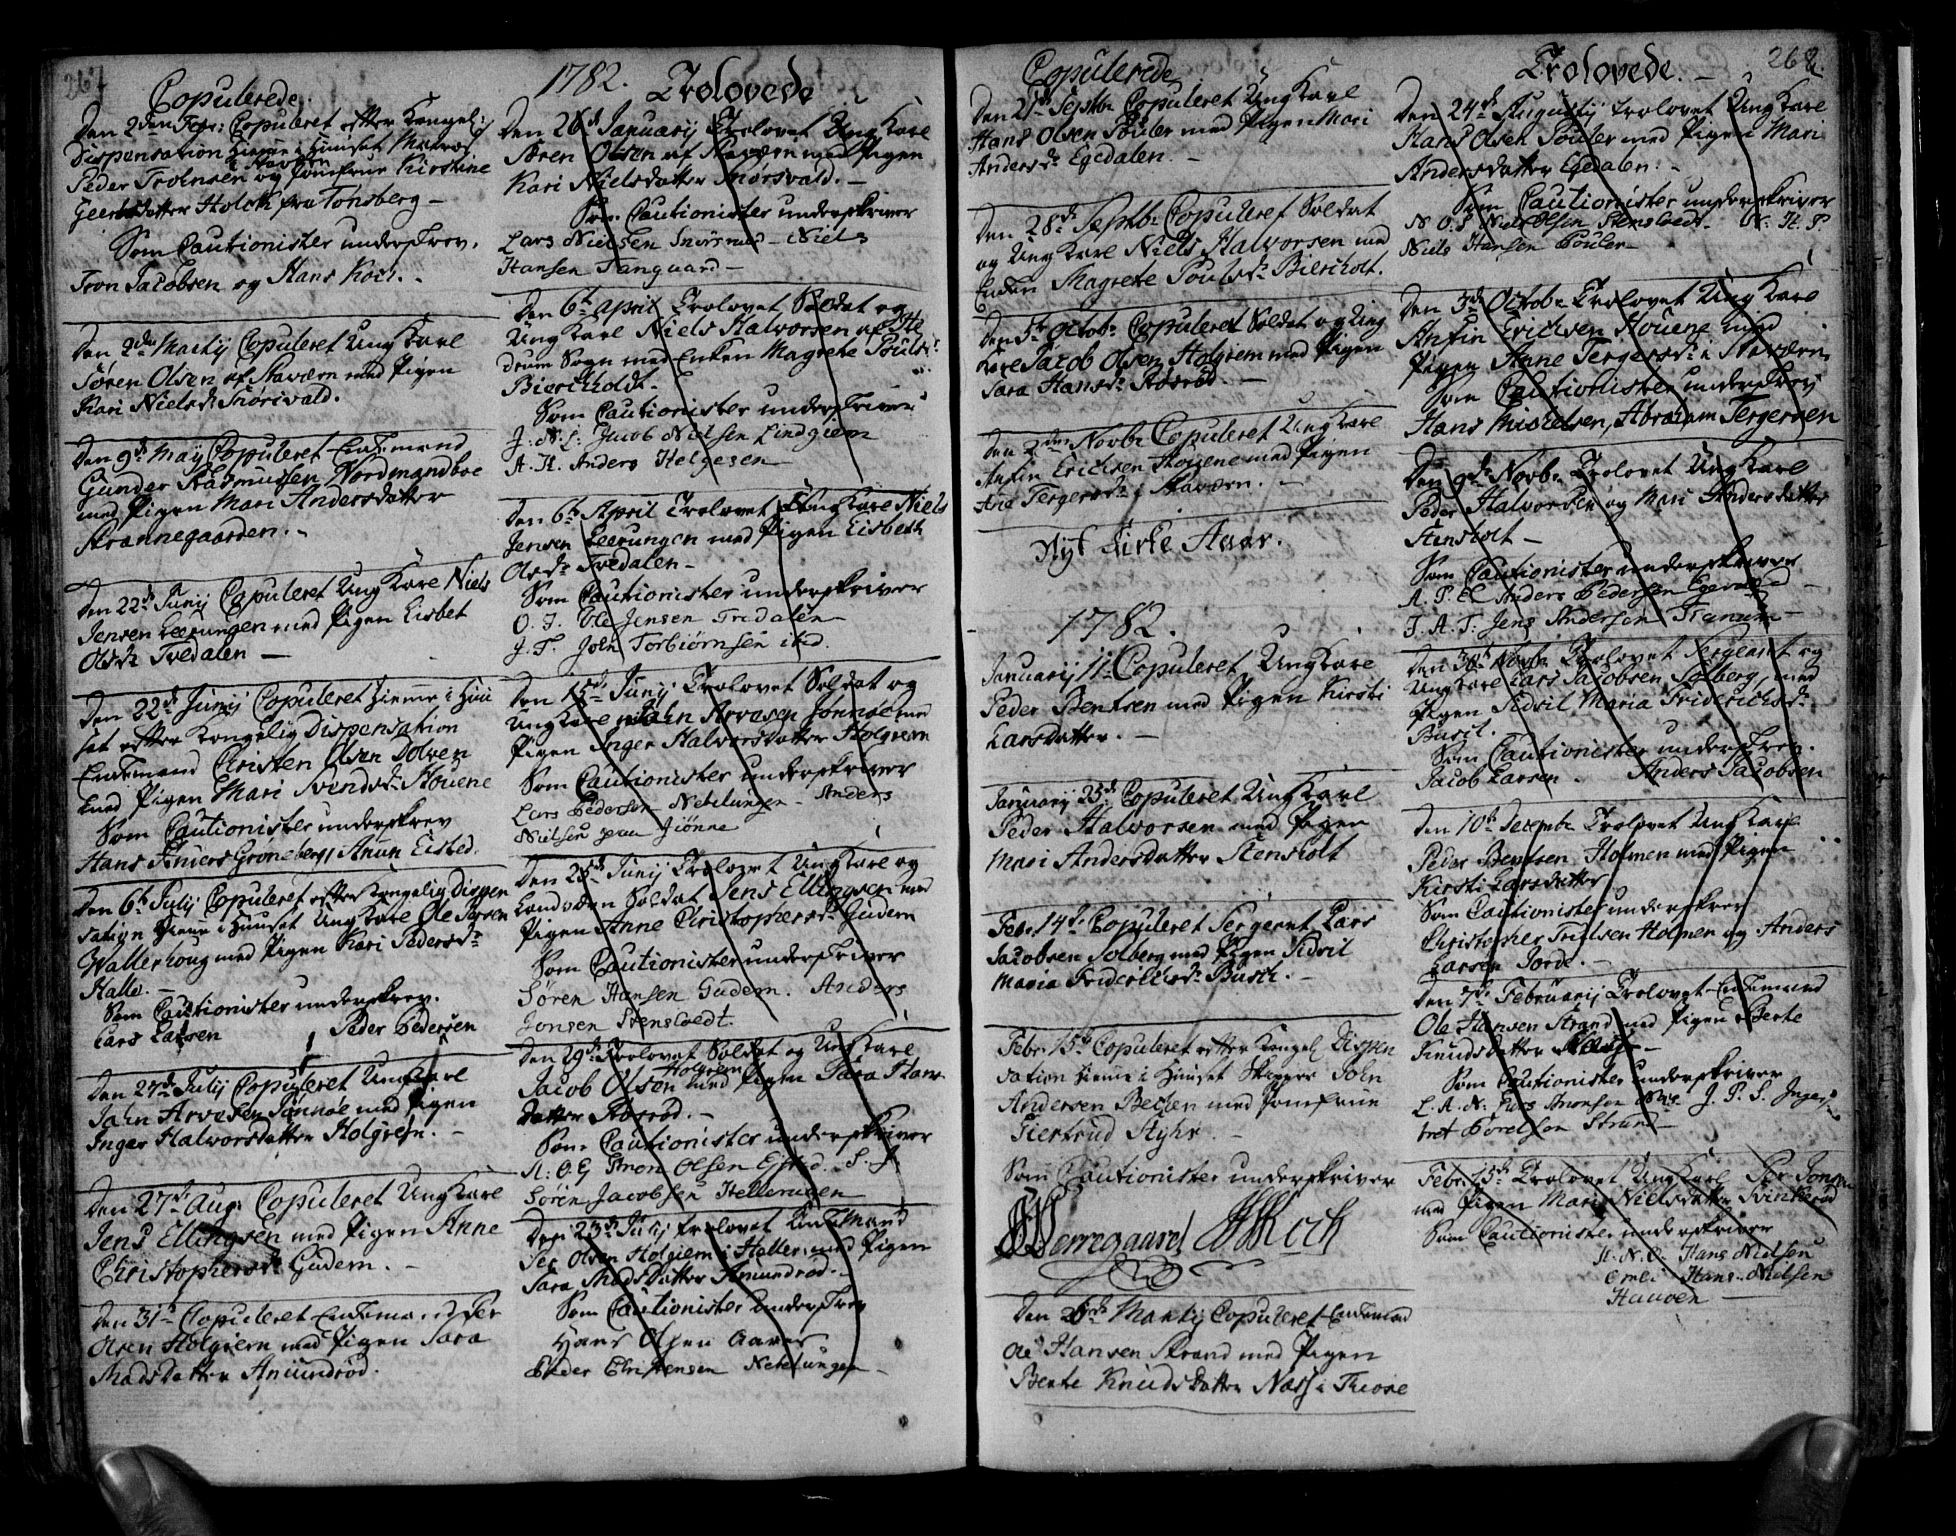 267
Copulerede.
Den 2den Febr: Copuleret efter Kongel:
Dispensation hieme i Huuset Matros
Peder Tronsen og Jomfrue Kirstine
Geertsdatter Holch fra Tønsberg —
Som Cautionister underskrev.
Tron Jacobsen og Hans Koch. -
Den 2de Martij Copuleret Ung Karl
Søren Olsen af Staværn med Pigen
Kari Nielsdr Snorsvald.
Den 9de Maij Copuleret Enkemand
Gunder Rasmussen Nordmandboe
med Pigen Mari Andersdatter
Skrannegaarden. -
Den 22de Junij Copuleret Ung Karl Niels
Jensen Leerungen med Pigen Lisbet
Olsdr Tvedalen —
Den 22de Junij Copuleret hieme i Huu
set efter Kongelig Dispensation
Enkemand Christen Olsen Dolven
med Pigen Mari Svendsdr Houene
Som Cautionister underskrev
Hans Groneberg, Eisted.
Den 6te Julij Copuleret efter Kongelig Dispen
sation hieme i Huuset Ung Karl Ole
Wallerhoug med Pigen Kari Pedersdr
Halle. -
Som Cautionister underskrev.
Lars Larsen Peder Pedersen
Den 27de Julij Copuleret Ung Karl
Jahn Arvesen Jønnøe med Pigen
Inger Halvorsdatter Holgrem. -
Den 27de Aug: Copuleret Ung Karl
Jens Ellingsen med Pigen Anne
Christophersdr Gudem. -
Den 31te Copuleret Enkemand Per
Olsen Holgrem med Pigen Sara
Madsdatter Amundrød.
1782. Trolovede
Den 26de Januarij Trolovet Ung Karl
Søren Olsen af Staværn med Pigen
Kari Nielsdatter Snorsvald. -
Som Cautionister underskriver
Lars Nielsen Snorsvald - Niels
Hansen Tanguard —
Den 6te April Trolovet Soldat og
Ung Karl Niels Halvorsen af He
drum Sogn med Enken Magrete Poulsdr
Bierkholdt.
Som Cautionister underskriver
J. N. L: Jacob Nielsen Lindgrem
A. H. Anders Helgesen
Den 6te April Trolovet Ung Karl Niels
Jensen Leerungen med Pigen Lisbeth
Olsdr Tvedalen -
Som Cautionister underskriver
O. J. Ole Jensen Tvedalen
J. T. John Torbiørnsen ibid.
Den 15de Junij Trolovet Soldat og
Ung Karl Jahn Arvesen Jonnøe med
Pigen Inger Halvorsdatter Holgrem
Som Cautionister underskriver
Lars Pedersen Nebelungen - Anders
Nielsen paa Jiønne
Den 25de Junij Trolovet Ung Karl og
Landværn Soldat Jens Ellingsen med
Pigen Anne Christophersdr Gudem
Som Cautionister underskriver
Søren Hansen Gudem. Anders
Jonsen Stensloedt.
Den 29de Trolovet Soldat og Ung Karl
Jacob Olsen Holgrem med Pigen Sara Hans
datter Røsrød. -
Som Cautionister underskriver
A. O. E Aron Olsen Eisted. S. J
Sören Jacobsen Hellerungen
Den 23de Julij trolovet Enkemand
Per Olsen Holgrem i Halle med Pigen
Sara Madsdatter Amundrød. -
Som Cautionister underskrev
Hans Olsen Aarøe
Peder Christensen Nebelungen -
Copulerede
Den 21de Septbr Copuleret Ung Karl
Hans Olsen Pouler med Pigen Mari
Andersdr Egedalen. -
Den 28de Septbr Copuleret Soldat
og Ung Karl Niels Halvorsen med
Enken Magrete Poulsdr Bierkholt.
Den 5te Octobr Copuleret Soldat og Ung
Karl Jacob Olsen Holgrem med Pigen
Sara Hansdr Røsrød. -
Den 2den Novbr Copuleret Ung Karl
Anfin Erichsen Houene med Pigen
Ane Tergersdr i Staværn. -
Nyt Kirke Aar.
1782.
Januarij 11te Copuleret Ung Karl
Peder Bentsen med Pigen Kirsti
Larsdatter. -
Januarij 25de Copuleret Ung Karl
Peder Halvorsen med Pigen
Mari Andersdatter Stensholt
Febr. 14de Copuleret Sergeant Lars
Jacobsen Solberg med Pigen Sidsil
Maria Friderichsdr Busch. -
Febr. 15de Copuleret efter Kongel Dispen
sation hieme i Huuset Skipper John
Andersen Becken med Jomfrue
Giertrud Myhr. -
Som Cautionister underskriver
Worregaard Koch
Den 26de Martij Copuleret Enkemand
Ole Hansen Strand med Pigen
Berte Knudsdatter Næss i Thiose
268
Trolovede. -
Den 24de Augustij trolovet Ung Karl
Hans Olsen Pouler med Pigen Mari
Andersdatter Egedalen. -
Som Cautionister underskriver
N. O. S Niels Olsen Stensloedt. N. H. P
Niels Hansen Pouler
Den 3de Octobr Trolovet Ung Karl
Anfin Erichsen Houene med
Pigen Anne Tergersdr i Staværn
Som Cautionister underskrev
Hans Mickelsen, Abraham Tergersen
Den 9de Novbr Trolovet Ung Karl
Peder Halvorsen og Mari Andersdatter
Stensholt —
Som Cautionister underskriver
A. P. E Anders Pedersen
J. A. T. Jens Andersen Tranum —
Den 30te Novbr Trolovet Sergeant og
Ung Karl Lars Jacobsen Solberg, med
Pigen Sidsil Maria Friderichsdr
Busch.
Som Cautionister underskrev.
Jacob Larsen. Anders Jacobsen
Den 10de Decembr Trolovet Ung Karl
Peder Bentsen Holmen med Pigen
Kirsti Larsdatter
Som Cautionister underskrev
Christopher Holmen og Anders
Larsen Jorde. -
Den 7de Februarij Trolovet Enkemand
Ole Hansen Strand med Pigen Berte
Knudsdatter Næss -
Som Cautionister underskriver
L. A. N. Lars Næss. J. P. S. Inge-
bret Strand —
Febr. 15de Trolovet Ung Karl Per Jonsen
med Pigen Mari Nielsdatter
Som Cautionister underskriver
H. N. O. Hans Nielsen
Omli Hans Nielsen
Haaven —